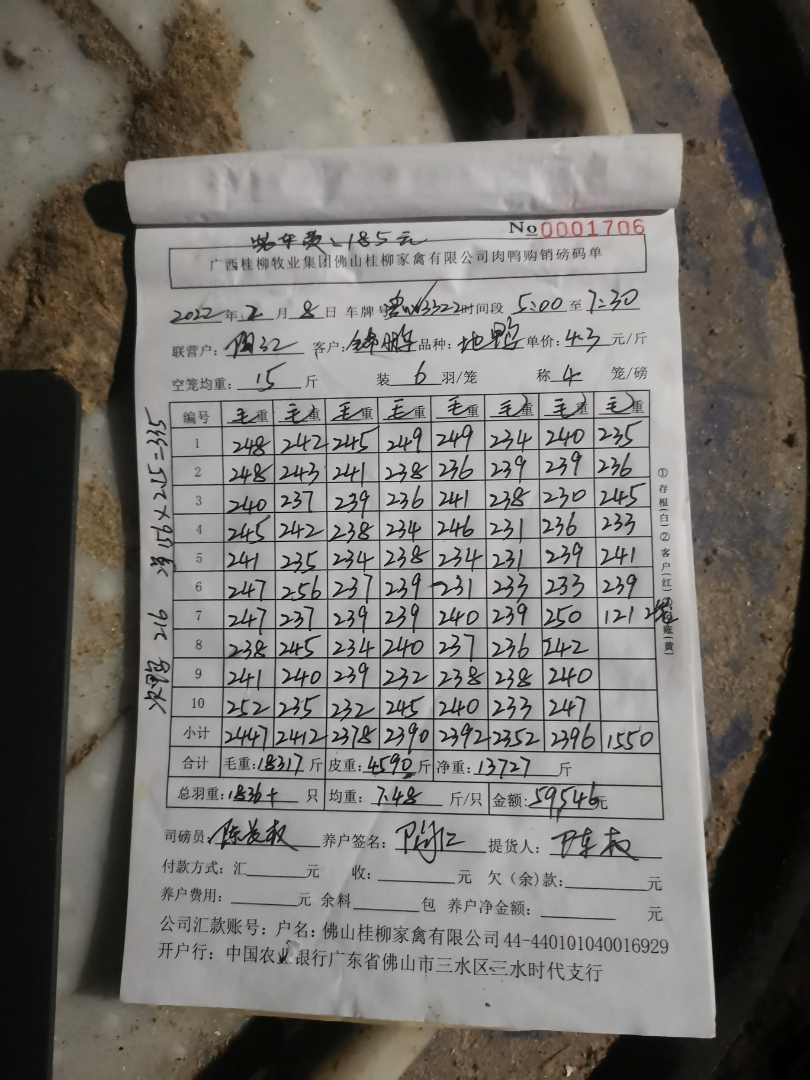 No 0001706
185元
广西桂柳牧业集团佛山桂柳家禽有限公司肉鸭购销磅码单
2022年2月8日 车牌号 时间段 5:00 至 7:30
联营户: 客户: 品种: 地鸭 单价: 4.3 元/斤
空笼均重: 15 斤 装 6 羽/笼 称 4 笼/磅
编号 毛重 毛重 毛重 毛重 毛重 毛重 毛重 毛重
1 248 242 245 249 249 234 240 235
2 248 243 241 238 236 239 239 236
3 240 237 239 236 241 238 230 245
4 245 242 238 234 246 231 236 233
5 241 235 234 238 234 231 239 241
6 247 256 237 239 231 233 233 239
7 247 237 239 239 240 239 250 121
8 238 245 234 240 237 236 242
9 241 240 239 232 238 238 240
10 252 235 232 245 240 233 247
小计 2447 2412 2378 2390 2392 2352 2396 1550
合计 毛重: 18317 斤 皮重: 4590 斤 净重: 13727 斤
总羽重: 1836 只 均重: 7.48 斤/只 金额: 59546元
司磅员: 养户签名: 提货人:
付款方式: 汇 元 收: 元 欠（余）款: 元
养户费用: 元 余料 包 养户净金额: 元
公司汇款账号: 户名: 佛山桂柳家禽有限公司 44-440101040016929
开户行: 中国农业银行广东省佛山市三水区三水时代支行
①存根(白)②客户(红)
账(黄)
912